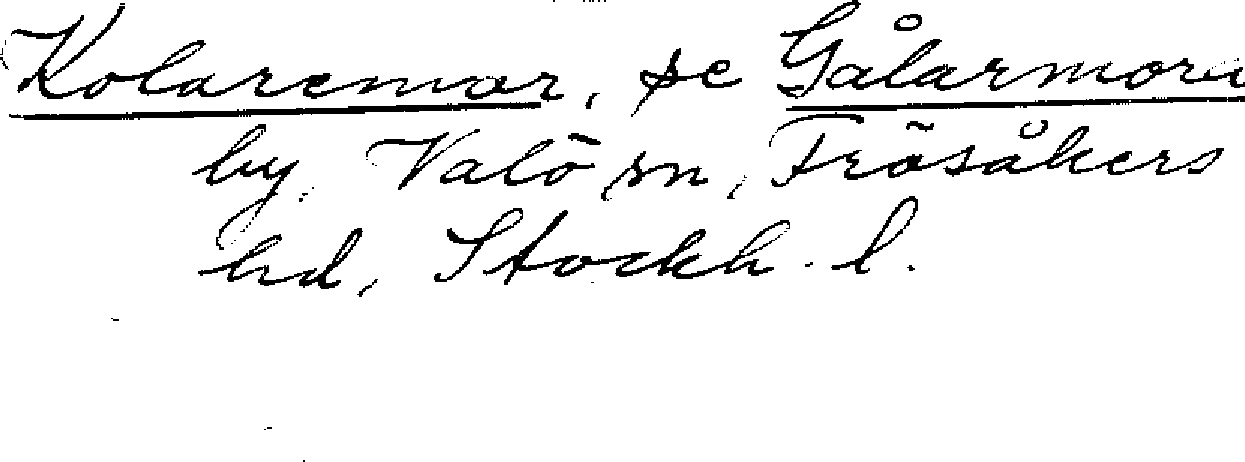 Kolaremor, se Gålarmora
by, Valö sn, Frösåkers
hd, Stockh. l.